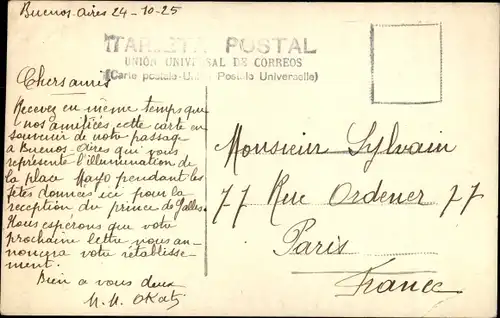 Buenos-Aires 24-10-25
TARJETA POSTAL
UNIÓN UNIVERSAL DE CORREOS
(Carte postale-Union Postale Universelle)
Chers amis
Recevez en même temps que
nos amitiées cette carte en
souvenir de notre passage
à Buenos-Aires qui vous
représente l'illumination de
la place Mayo pendant les
fêtes données ici pour la
reception du prince de Galles.
Nous espérons que votre
prochaine lettre nous an-
noncera votre rétablisse-
ment.
Bien a vous deux
M. M. Okats
Monsieur Sylvain
77 Rue Ordener 77
Paris
France